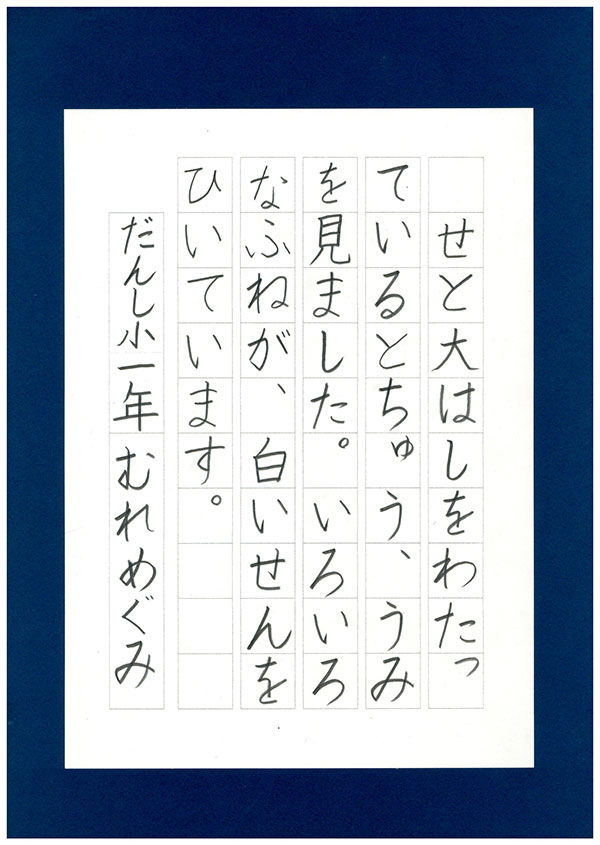 せと大はしをわたっ
ているとちゅう、うみ
を見ました。いろいろ
なふねが、白いせんを
ひいています。
だんし小一年むれめぐみ